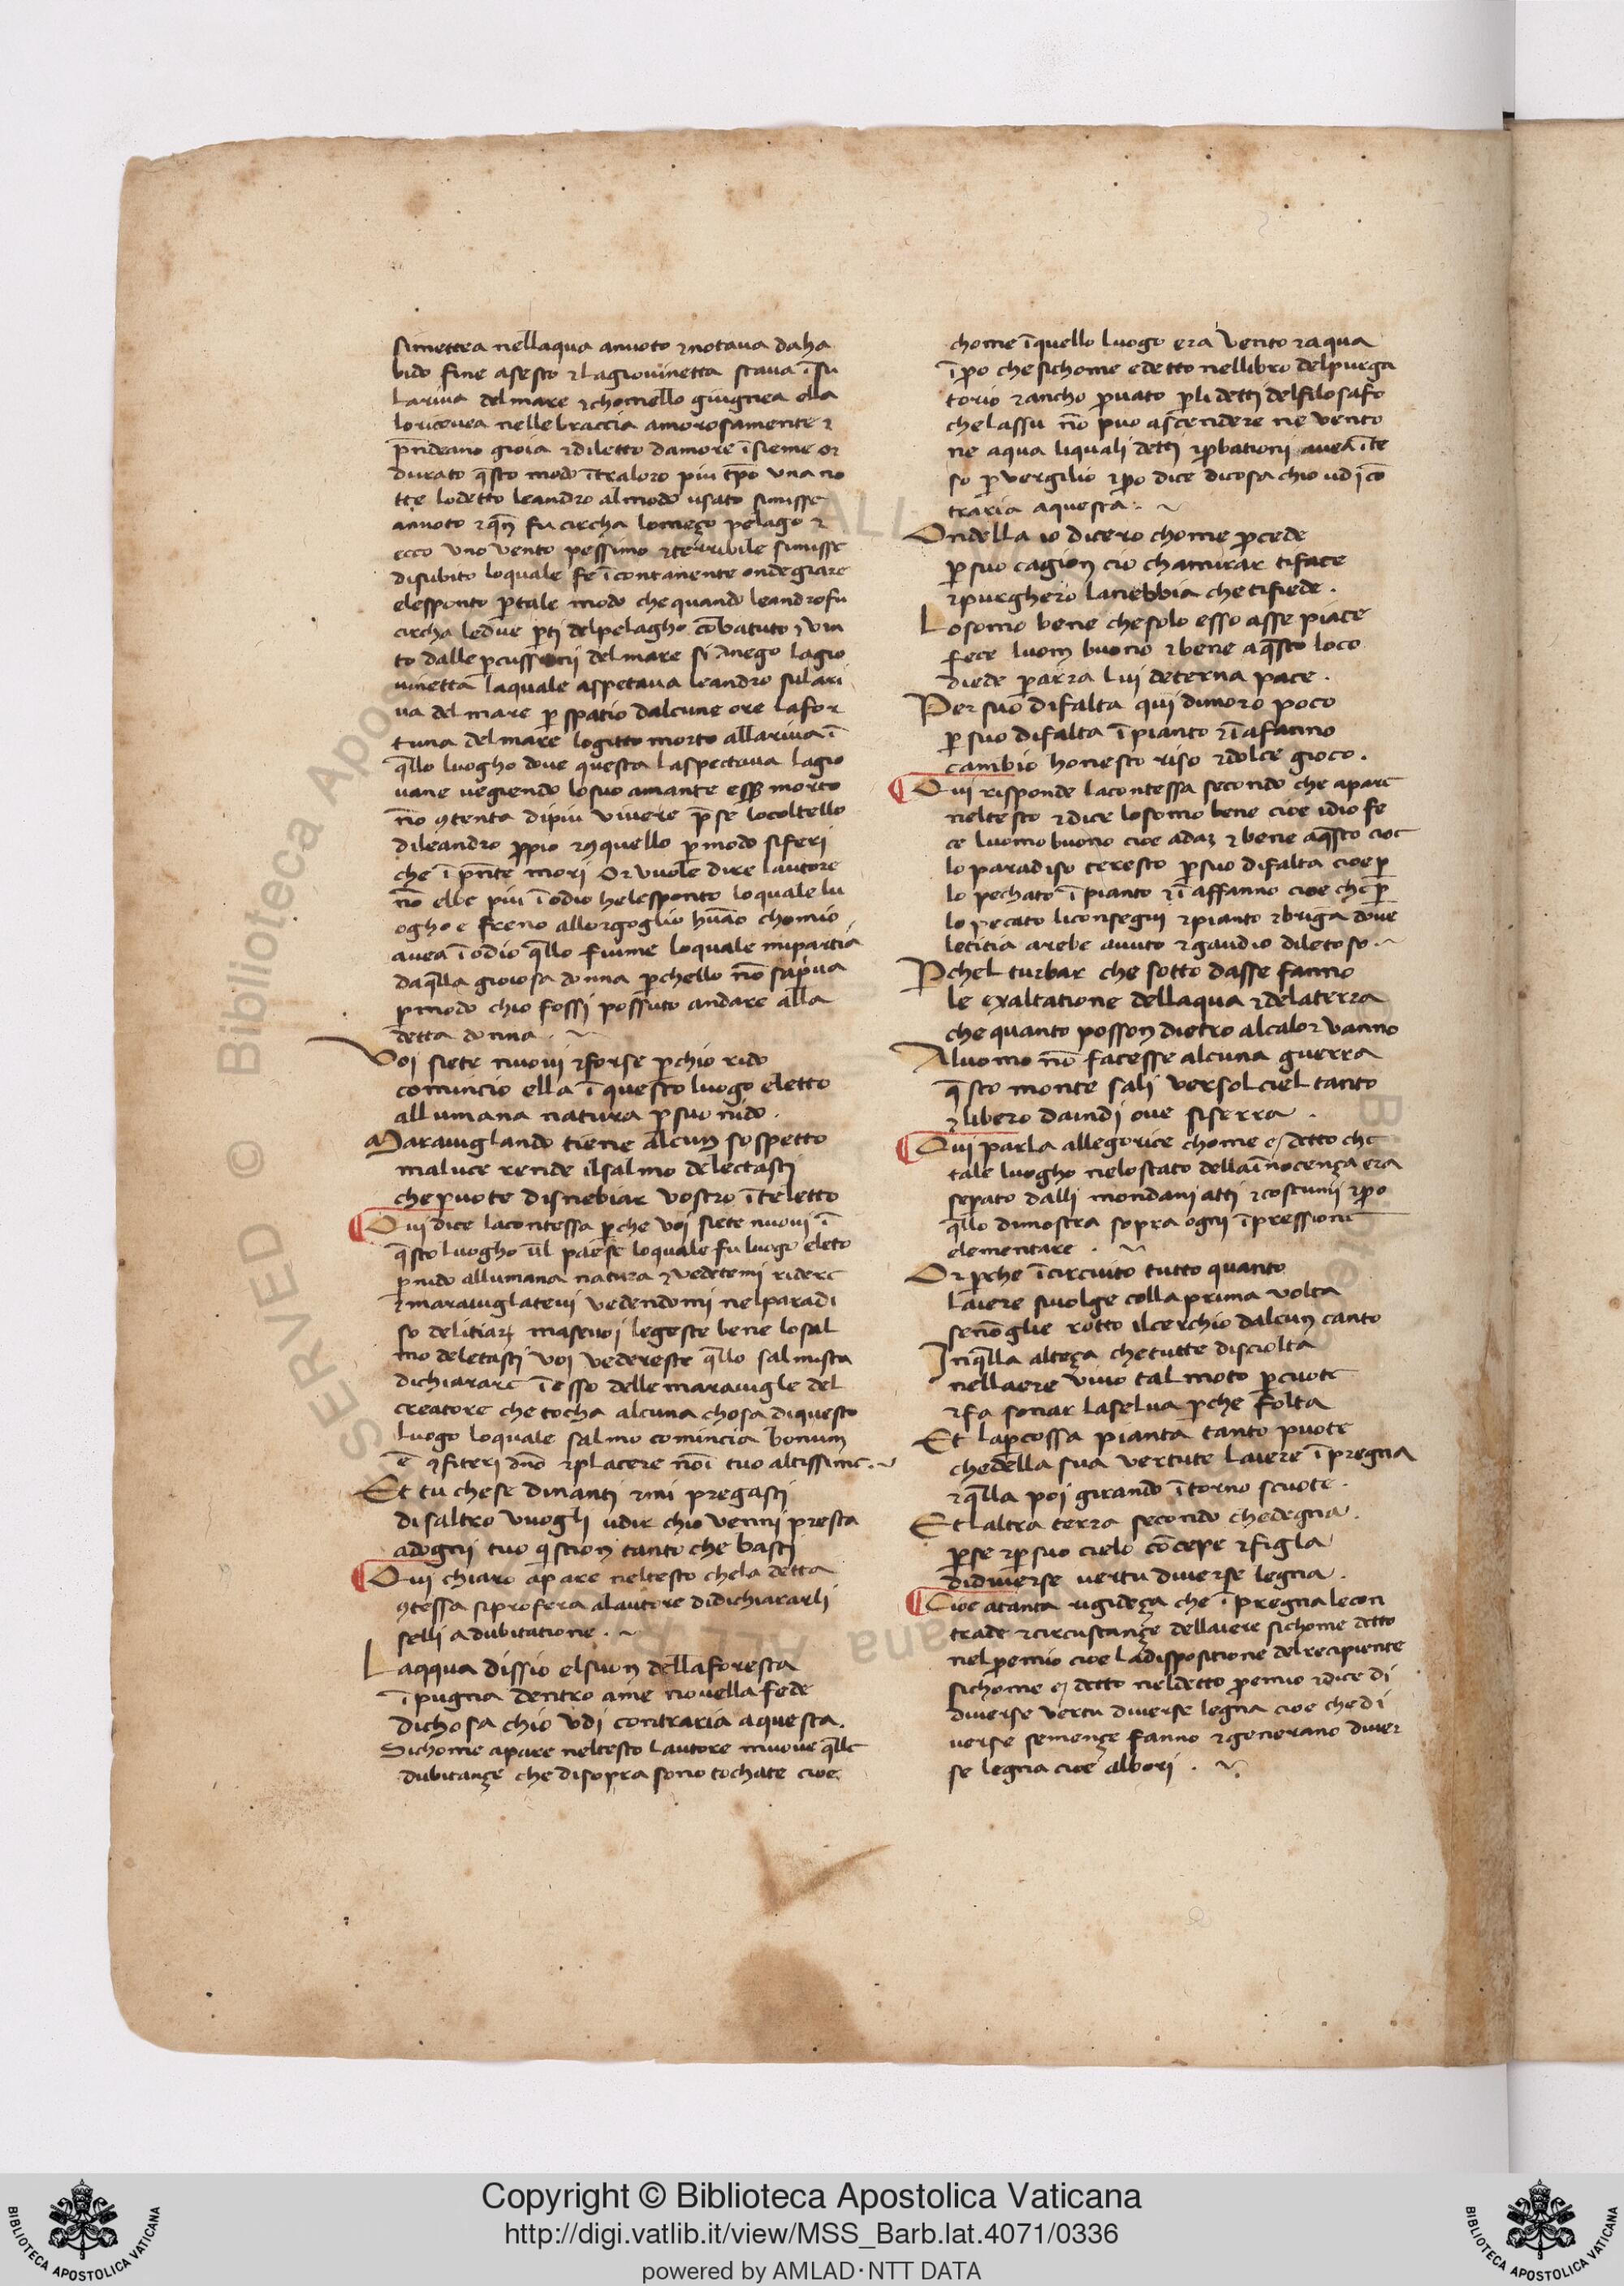 simettea nellaqua anuoto ⁊ notaua daha
bido fine asesto ⁊ lagiouinetta staua ī su
lariua delmare ⁊ chomello giugnea ella
loriceuea nelle braccia amorosamente ⁊
p̄ndeano gioia ⁊ diletto damore īsieme or
durato q̄sto modo ītraloro piu tp̄o una no
tte lodetto leandro almodo usato simisse
anuoto ⁊ fu circha lomeço pelago ⁊
ecco uno uento pessimo ⁊ terribile simisse
disubito loquale fe īcontanente ondegiare
elesponto p̄tale modo che quando leandro fu
circha ledue p̄ti delpelagho cōbatuto ⁊ uin
to dalle p̄cussionj delmare si anego lagio
uinetta laquale aspetaua leandro sulari
ua del mare p̄ spatio dalcune ore lafor
tuna delmare logitto morto allariua ī
q̄llo luogho doue questa laspectaua lagio
uane uegiendo losuo amante morto
nō ꝯtenta dipiu uiuere p̄se locoltello
dileandro p̄pio ⁊ ꝯquello p̄modo siferi
che ī p̄nte mori Or uuole dire lautore
nō ebbe piu ī odio helesponto loquale lu
ogho e freno allorgoglio hūāo chomio
auea ī odio q̄llo fiume loquale mipartia
daq̄lla gioiosa donna p̄chello nō sap̄ua
p̄modo chio fossj possuto andare alla
detta donna .
Voj siete nuoui ⁊ forse p̄chio rido
comincio ella ī questo luogo eletto
allumana natura p̄suo nido .
Marauiglando tiene alcun sospetto
maluce rende ilsalmo delectastj
che puote disnebiar uostro īteletto
Qui dice lacontessa p̄che uoj siete nuouj ī
q̄sto luogho paese loquale fu luogo eleto
p̄nido allumana natura ⁊ uedetemi ridere
⁊ marauiglateui uedendomi nelparadi
so delitiar̄ maseuoj legeste bene losal
mo deletastj uoj uedereste q̄llo salmista
dichiarare īesso delle marauigle del
creatore che tocha alcuna chosa diquesto
luogo loquale salmo comincia bonum
ē ꝯfiteri dn̄o ⁊ placere nōī tuo altissime .
Et tu chese dinantj ⁊ mi pregastj
disaltro uuoglj udir chio uennj presta
adognj tuo q̄stion tanto che bastj
Qui chiaro apare neltesto chela detta
ꝯtessa siprofera alautore didichiararlj
sellj a dubitatione .
Laqqua dissio elsuon dellaforesta
īpugna dentro ame nouella fede
dichosa chio udj contraria aquesta .
Sichome apare neltesto lautore muoue q̄lle
dubitançe che disopra sono tochate cioe
chome īquello luogo era uento ⁊ aqua
īp̄o che sichome edetto nellibro delpurga
torio ⁊ ancho p̄uato p̄li dettj delfilosafo
chelassu nō puo ascendere ne uento
ne aqua liqualj dettj ⁊ p̄bationj aueā īte
so p̄ uergilio ⁊ p̄o dice dicosa chio udj cō
traria aquesta .
Ondella io dicero chome p̄cede
p̄ suo cagion cio chamirar tiface
⁊ purghero lanebbia chetifiede .
Losomo bene chesolo esso asse piace
fece luom buono ⁊ bene aq̄sto loco
diede p̄arra luj deterna pace .
Per suo difalta qui dimoro poco
p̄ suo difalta ī pianto ⁊ ī afanno
cambio honesto riso ⁊ dolce gioco .
Qui risponde lacontessa secondo che apare
neltesto ⁊ dice losomo bene cioe idio fe
ce luomo buono cioe adaʒ ⁊ bene aq̄sto cioe
lo paradiso teresto p̄suo difalta cioe p̄
lo pechato ī pianto ⁊ ī affanno cioe che p̄
lo pecato liconseguj ⁊ pianto ⁊ briga doue
letitia arebe auuto ⁊ gaudio diletoso .
P̄chel turbar che sotto dasse fanno
le exaltatione dellaqua ⁊ delaterra
che quanto posson dietro alcalor uanno
Aluomo nō facesse alcuna guerra
q̄sto monte salj uersolciel tanto
⁊ libero daindj oue siserra .
Qui parla allegorice chome e detto che
tale luogho nelostato dellaīnocença era
sep̄ato dallj mondanj attj ⁊ costumj ⁊ p̄o
q̄llo dimostra sopra ognj īpressione
elementare .
Or p̄che īcircuito tutto quanto
laiere suolge colla prima uolta
senōglie rotto ilcerchio dalcun canto
Inq̄lla alteça chetutte disciolta
nellaere uiuo tal moto p̄cuote
⁊ fa sonar laselua p̄che folta
Et lap̄cossa pianta tanto puote
chedella sua uertute laiere īpregna
⁊ q̄lla poj girando ītorno scuote .
Et laltra terra secondo chedegna .
p̄se ⁊ p̄suo cielo cōcepe ⁊ figla
didiuerse uertu diuerse legna .
Cioe atanta rigideça che īpregna lecon
trade ⁊ circustançe dellaiere sichome detto
nelp̄emio cioe ladispositione delrecipiente
sichome e detto neldetto p̄emio ⁊ dice di
diuerse uertu diuerse legna cioe che di
uerse semençe fanno ⁊ generano diuer
se legna cioe alborj .
Copyright © Biblioteca Apostolica Vaticana
http://digi.vatlib.it/view/MSS_Barb.lat.4071/0336
powered by AMLAD·NTT DATA
BIBLIOTECA APOSTOLICA VATICANA
BIBLIOTECA APOSTOLICA VATICANA